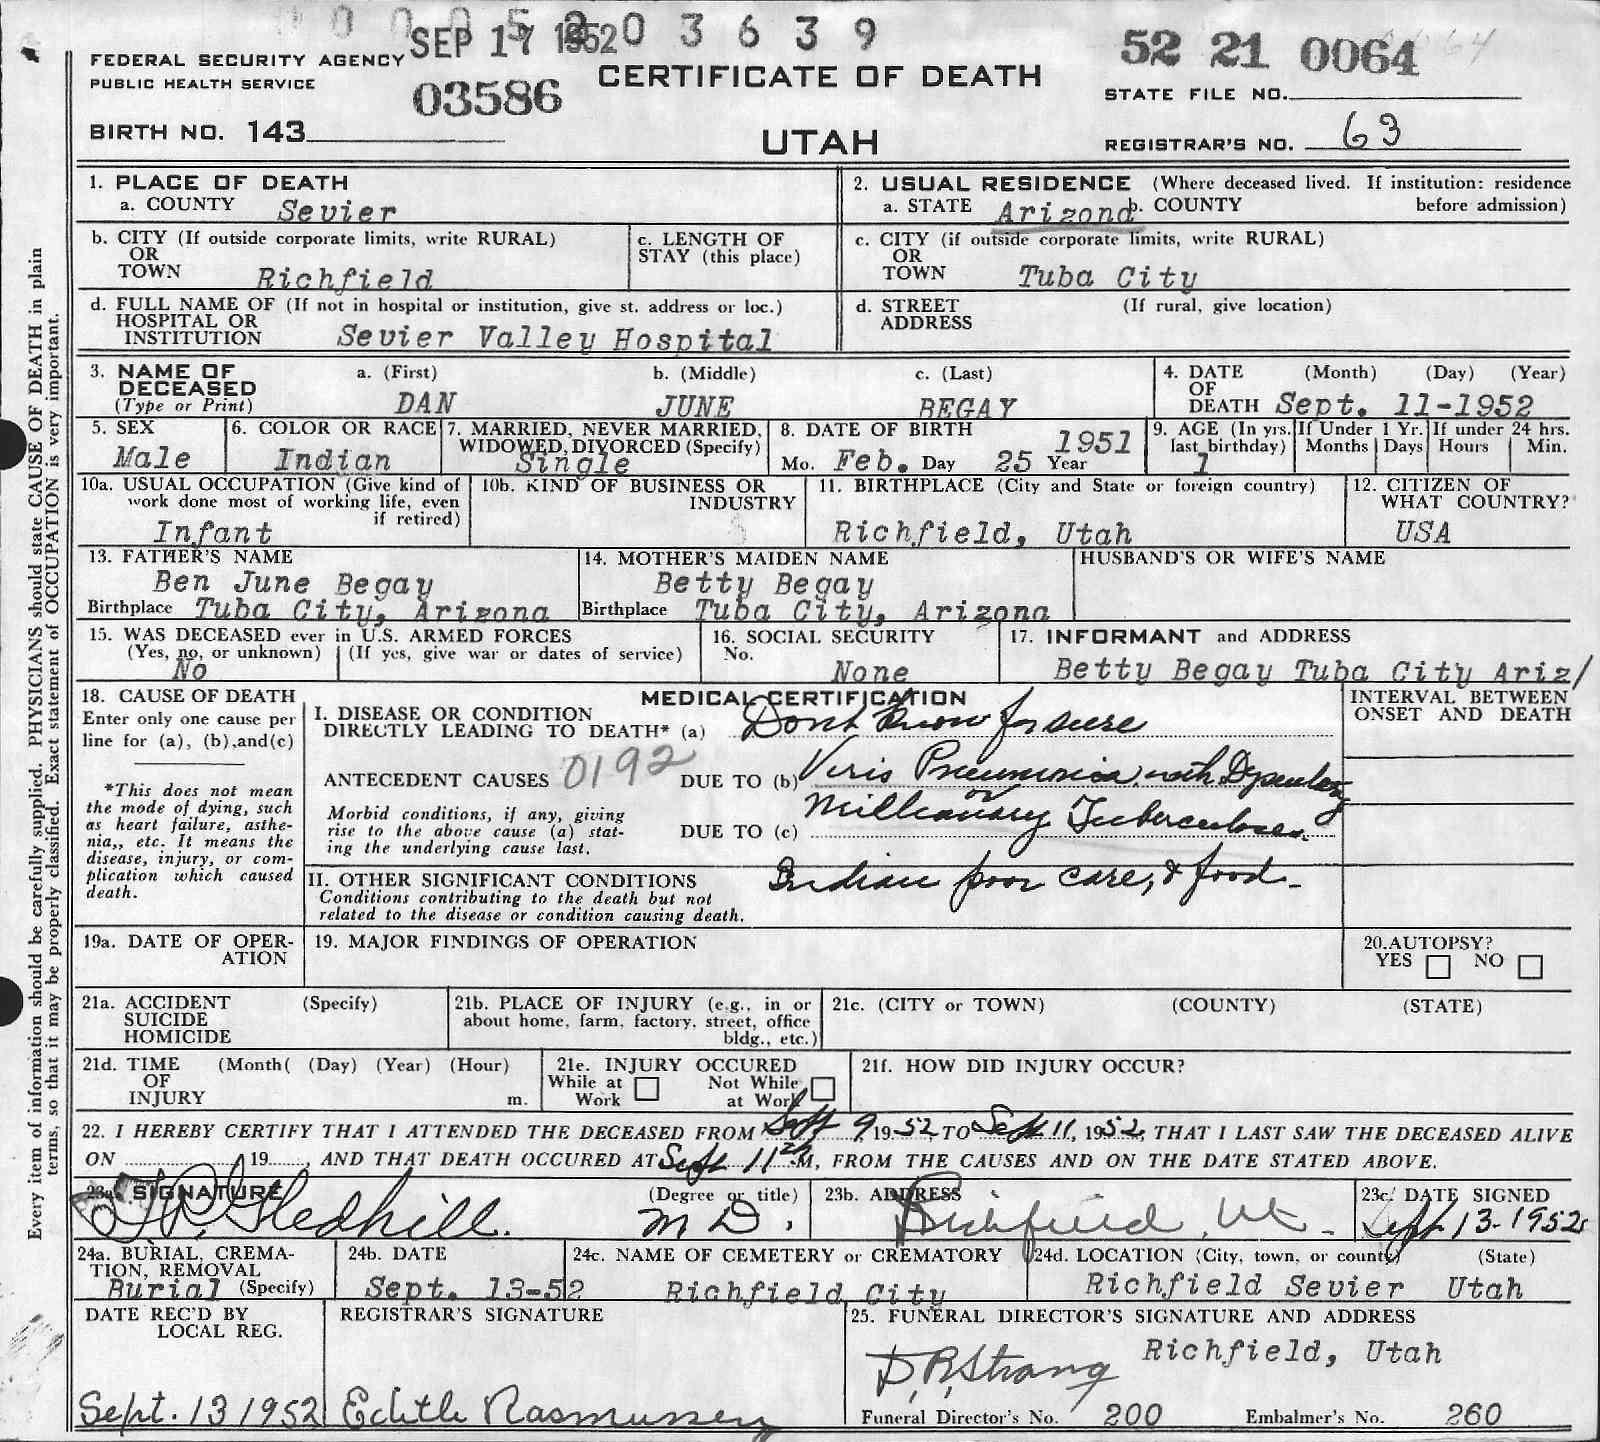 0 0 0 5 2 0 3 6 3 9
FEDERAL SECURITY AGENCY SEP 17 1952
PUBLIC HEALTH SERVICE
03586
CERTIFICATE OF DEATH
52 21 0064
STATE FILE NO.
BIRTH NO. 143
UTAH
REGISTRAR'S NO. 63
1. PLACE OF DEATH
a. COUNTY Sevier
2. USUAL RESIDENCE (Where deceased lived. If institution: residence before admission)
a. STATE Arizona b. COUNTY
b. CITY (If outside corporate limits, write RURAL)
OR
TOWN Richfield
c. LENGTH OF
STAY (this place)
c. CITY (if outside corporate limits, write RURAL)
OR
TOWN Tuba City
d. FULL NAME OF (If not in hospital or institution, give st. address or loc.)
HOSPITAL OR
INSTITUTION Sevier Valley Hospital
d. STREET (If rural, give location)
ADDRESS
3. NAME OF a. (First) b. (Middle) c. (Last)
DECEASED
(Type or Print) DAN JUNE BEGAY
4. DATE (Month) (Day) (Year)
OF
DEATH Sept. 11-1952
5. SEX
Male
6. COLOR OR RACE
Indian
7. MARRIED, NEVER MARRIED,
WIDOWED, DIVORCED (Specify)
Single
8. DATE OF BIRTH 1951
Mo. Feb. Day 25 Year
9. AGE (In yrs. last birthday) 1
If Under 1 Yr. Months Days
If under 24 hrs. Hours Min.
10a. USUAL OCCUPATION (Give kind of
work done most of working life, even
if retired)
Infant
10b. KIND OF BUSINESS OR
INDUSTRY
11. BIRTHPLACE (City and State or foreign country)
Richfield, Utah
12. CITIZEN OF
WHAT COUNTRY?
USA
13. FATHER'S NAME
Ben June Begay
Birthplace Tuba City, Arizona
14. MOTHER'S MAIDEN NAME
Betty Begay
Birthplace Tuba City, Arizona
HUSBAND'S OR WIFE'S NAME
15. WAS DECEASED ever in U.S. ARMED FORCES
(Yes, no, or unknown) (If yes, give war or dates of service)
No
16. SOCIAL SECURITY
No.
None
17. INFORMANT and ADDRESS
Betty Begay Tuba City Ariz/
18. CAUSE OF DEATH
Enter only one cause per
line for (a), (b), and (c)
*This does not mean
the mode of dying, such
as heart failure, asthe-
nia,, etc. It means the
disease, injury, or com-
plication which caused
death.
MEDICAL CERTIFICATION
I. DISEASE OR CONDITION
DIRECTLY LEADING TO DEATH* (a) Dont Know for sure
ANTECEDENT CAUSES 0192 DUE TO (b) Viris Pneumonia with Dysentery
or
Morbid conditions, if any, giving
rise to the above cause (a) stat-
ing the underlying cause last.
DUE TO (c) Millianary Tuberculoses.
II. OTHER SIGNIFICANT CONDITIONS
Conditions contributing to the death but not
related to the disease or condition causing death.
Indian poor care, & food-
INTERVAL BETWEEN
ONSET AND DEATH
19a. DATE OF OPER-
ATION
19. MAJOR FINDINGS OF OPERATION
20. AUTOPSY?
YES NO
21a. ACCIDENT (Specify)
SUICIDE
HOMICIDE
21b. PLACE OF INJURY (e.g., in or
about home, farm, factory, street, office
bldg., etc.)
21c. (CITY or TOWN) (COUNTY) (STATE)
21d. TIME (Month( (Day) (Year) (Hour)
OF
INJURY m.
21e. INJURY OCCURED
While at Work Not While at Work
21f. HOW DID INJURY OCCUR?
22. I HEREBY CERTIFY THAT I ATTENDED THE DECEASED FROM Sept 9 1952, TO Sept 11, 1952, THAT I LAST SAW THE DECEASED ALIVE
ON 19 , AND THAT DEATH OCCURED AT Sept 11th M, FROM THE CAUSES AND ON THE DATE STATED ABOVE.
23a. SIGNATURE (Degree or title)
Gledhill. M D.
23b. ADDRESS
Richfield, Ut
23c. DATE SIGNED
Sept 13-1952
24a. BURIAL, CREMA-
TION, REMOVAL
Burial (Specify)
24b. DATE
Sept. 13-52
24c. NAME OF CEMETERY or CREMATORY
Richfield City
24d. LOCATION (City, town, or county) (State)
Richfield Sevier Utah
DATE REC'D BY
LOCAL REG.
Sept. 13 1952
REGISTRAR'S SIGNATURE
Edith Rasmussen
25. FUNERAL DIRECTOR'S SIGNATURE AND ADDRESS
Richfield, Utah
D. R. Strang
Funeral Director's No. 200 Embalmer's No. 260
Every item of information should be carefully supplied. PHYSICIANS should state CAUSE OF DEATH in plain
terms, so that it may be properly classified. Exact statement of OCCUPATION is very important.